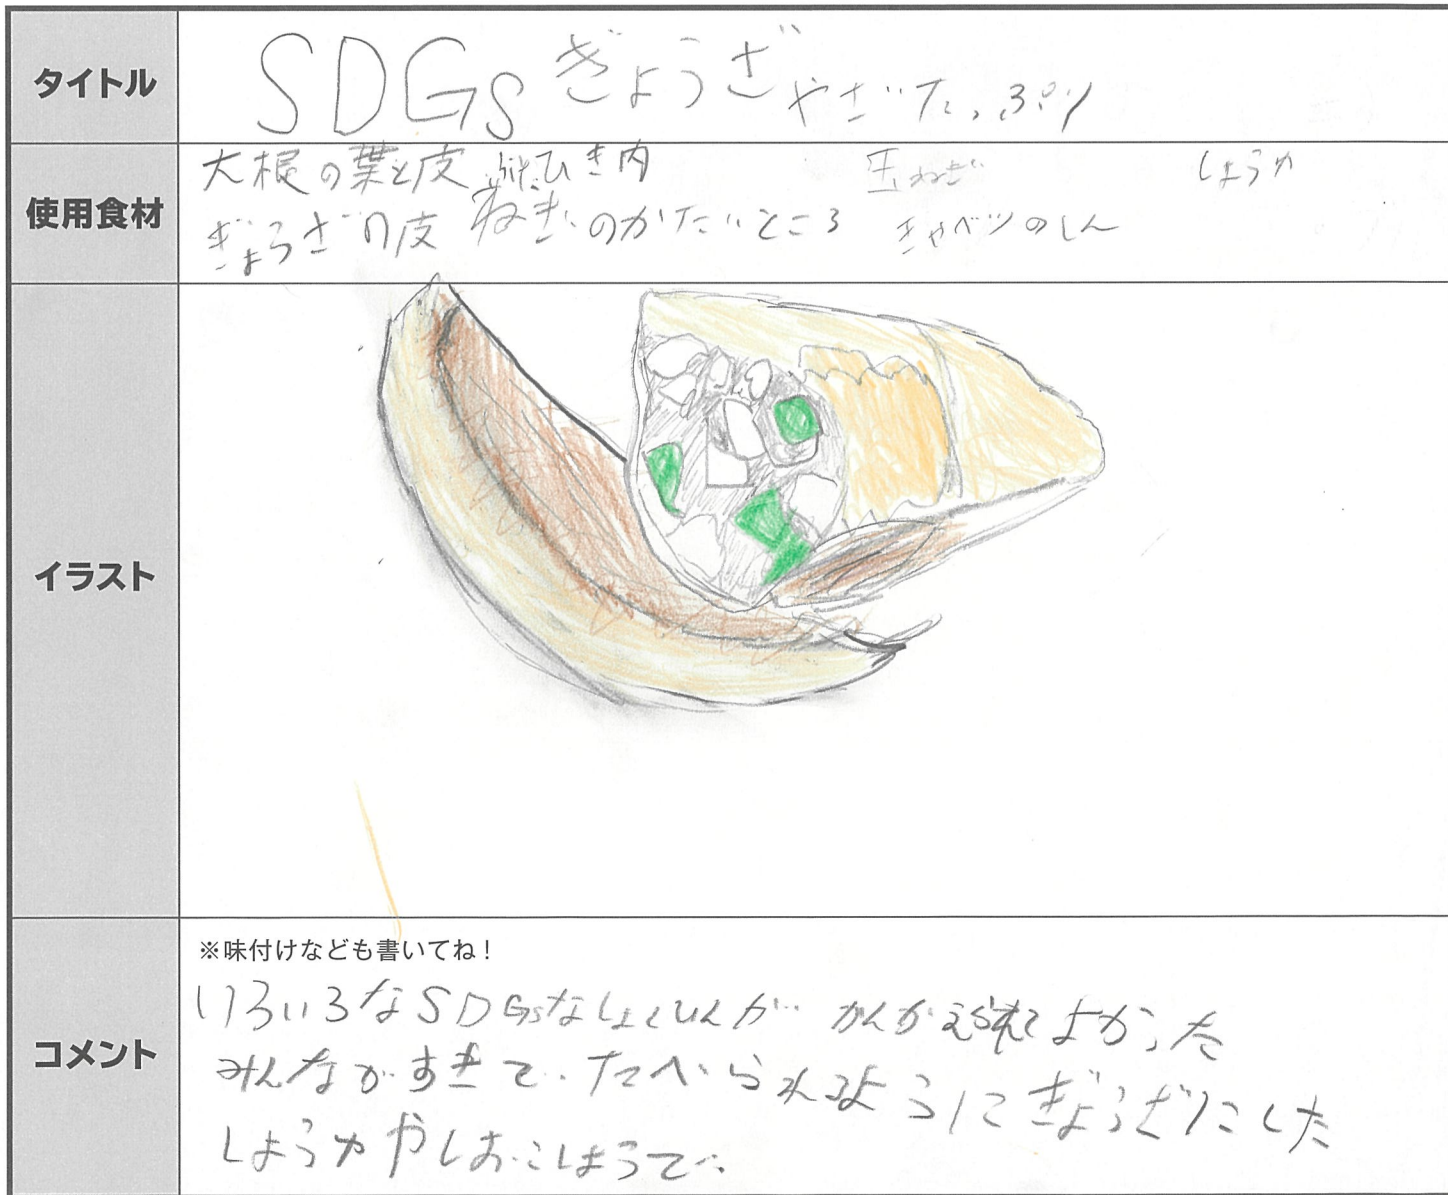 タイトル
SDGsぎょうざ やさいたっぷり
使用食材
大根の葉と皮 豚ひき肉 玉ねぎ しょうが
ぎょうざの皮 ねぎのかたいところ きゃべつのしん
イラスト
コメント
※味付けなども書いてね！
いろいろなSDGsなしょくひんが かんがえられてよかった
みんながすきで、たべられるようにぎょうざにした
しょうがやしおこしょうで、